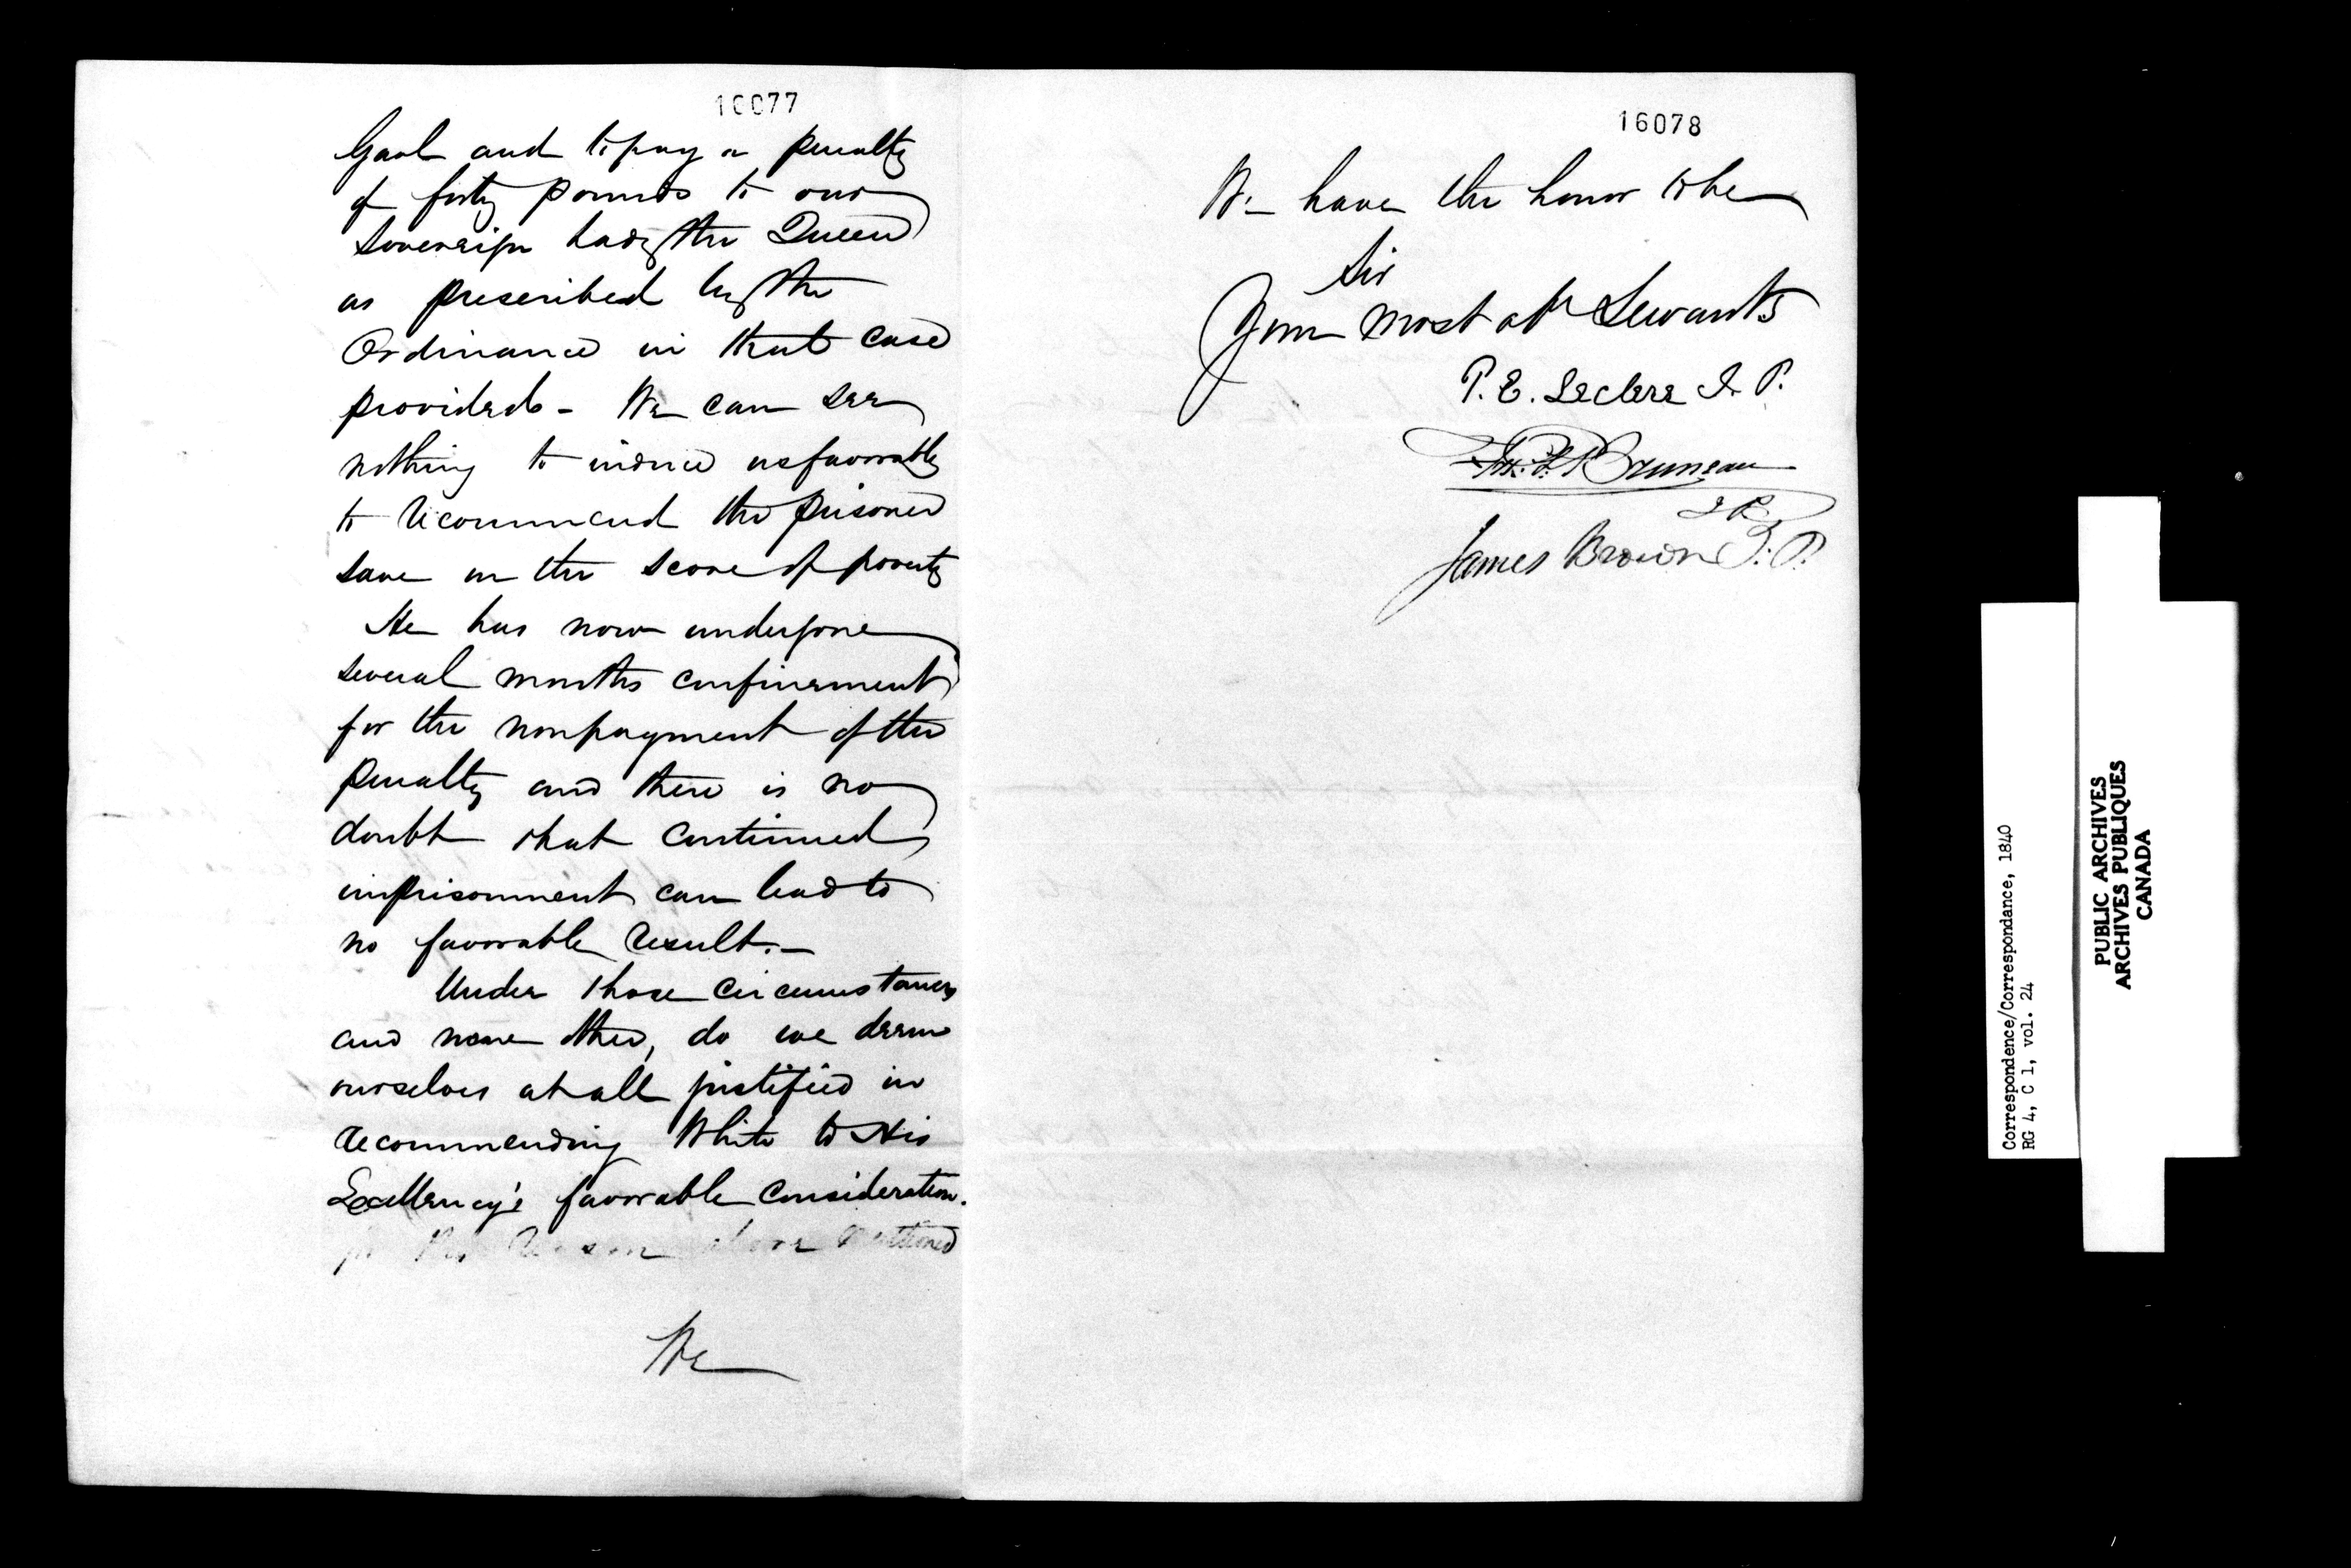 10077
Gaol and to pay a penalty
of forty pounds to our
Sovereign Lady the Queen
as prescribed by the
Ordinance in that case
provided - We can see
nothing to induce us favorably
to recommend the prisoner
save on the score of poverty
He has now undergone
several months confinement
for the nonpayment of the
penalty and there is no
doubt that continued
imprisonment can lead to
no favorable result.-
Under those circumstances
and none other, do we deem
ourselves at all justified in
recommending White to His
Excellency's favorable Consideration.
for the reason above
We
16078
We have the honor to be
Sir
Your most ob Servants
P. E. Leclere J. P.
Bruneau
J P
James Brown J. P.
Correspondence/Correspondance, 1840
RG 4, C 1, vol. 24
PUBLIC ARCHIVES
ARCHIVES PUBLIQUES
CANADA